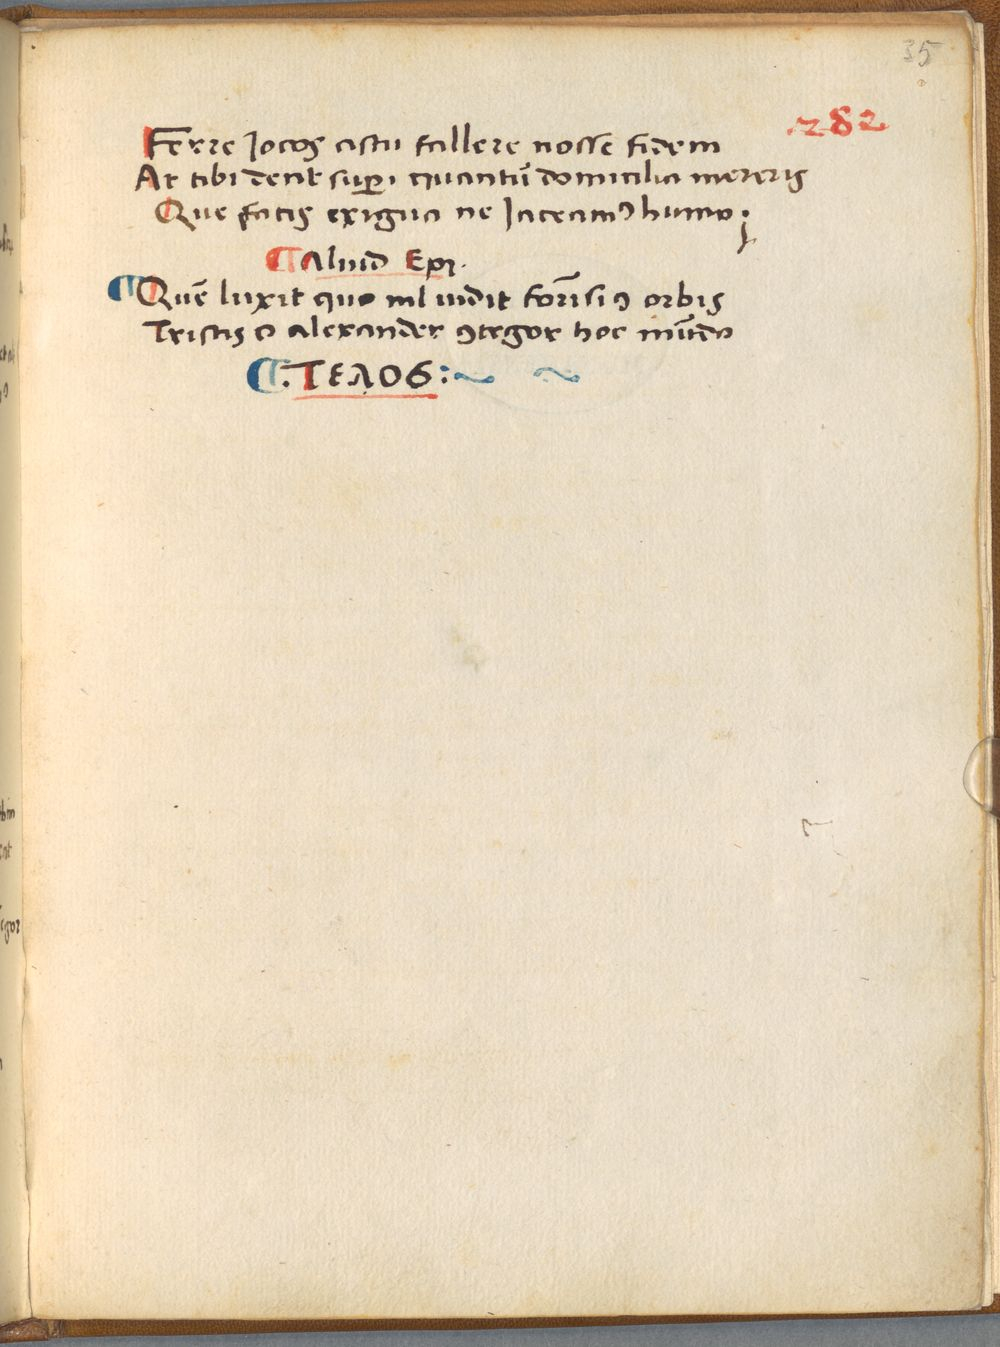 35
282
Ferre Jocos astu fallere nosse fidem
At tibi dent suꝑi quantū domicilia mereris
Que satis exigua ne Jaceamꝰ humo;
¶ Aliud Epi.
¶ Quē luxit quo nil uidit formosiꝰ orbis
Tristis o alexander ꝯtegor hoc mūdo
¶. Τελος:~ ~